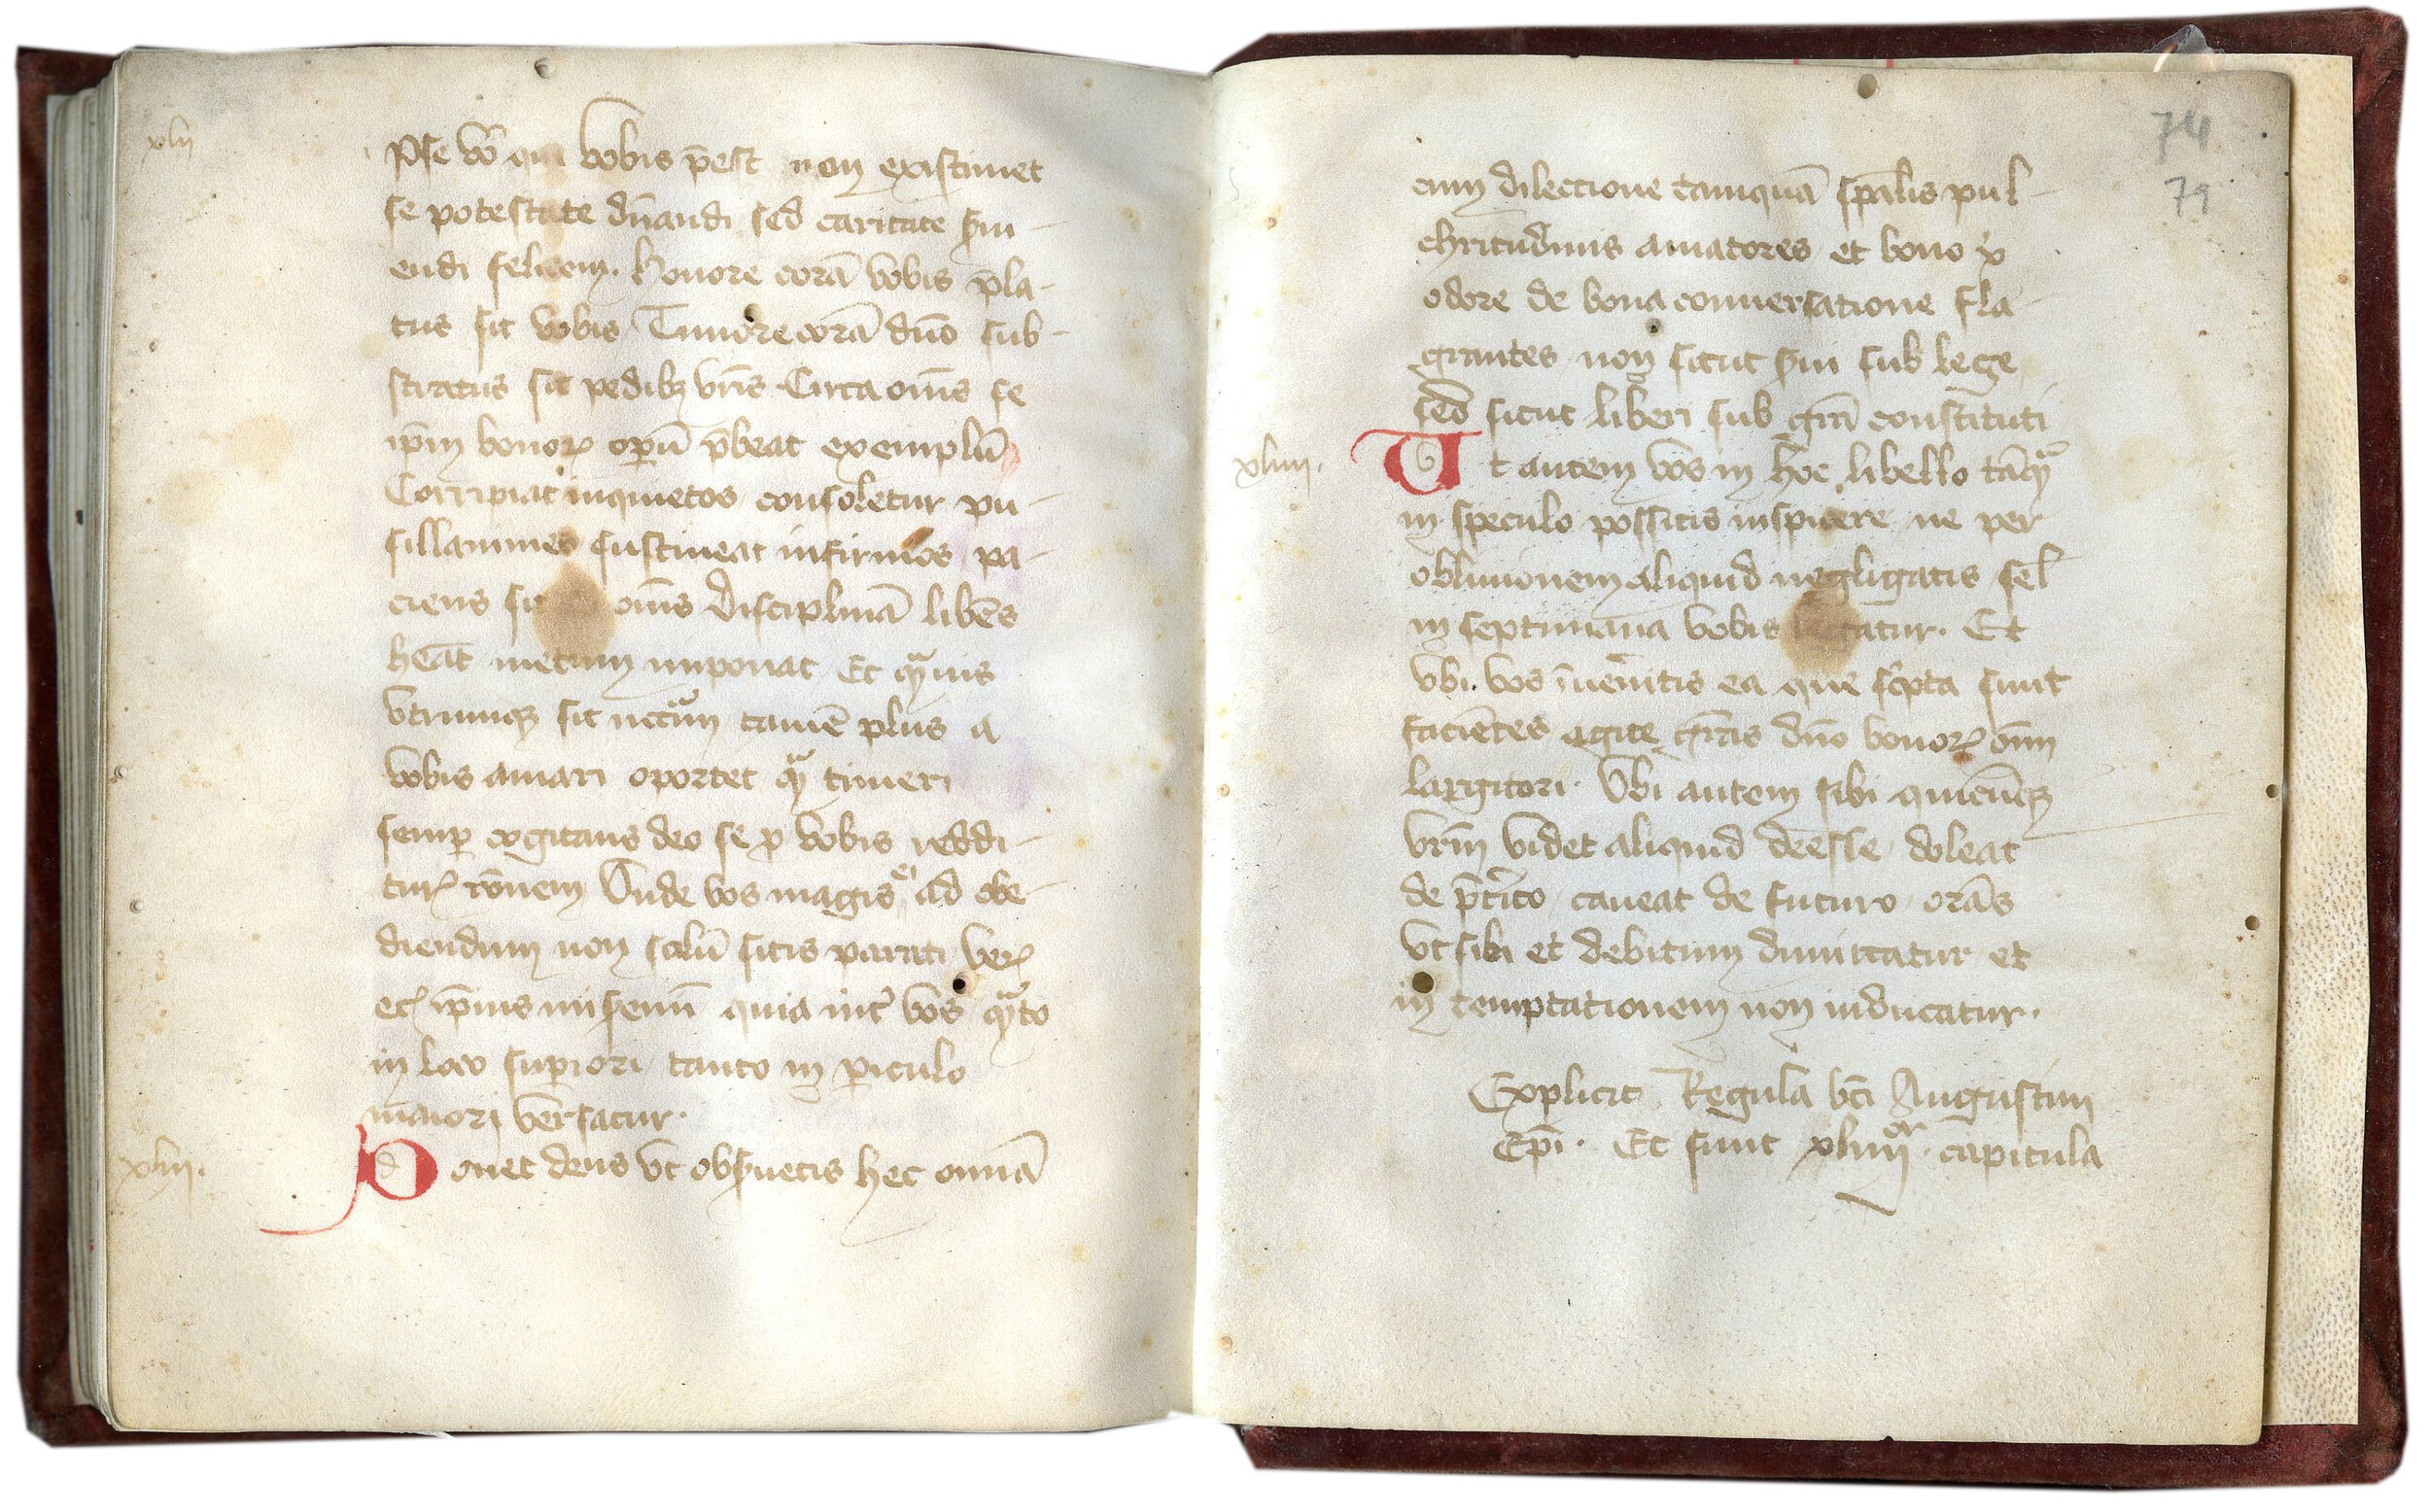 xlij
Ipse vo qui vobis p̄est non existimet
se potestate dn̄andi sed caritate ẜui-
endi felicem. Honore corā vobis p̄la-
tus sit vobis Timore corā dn̄o sub-
stratus sit pedibꝫ vr̄is Circa om̄s se
ip̄m bonoꝝ opū p̄beat exemplū
Corripiat inquietos consoletur pu-
sillanimes sustineat infirmos pa-
ciens sit om̄s disciplinā libēs
heāt metum imponat Et qᵃuis
vtrumqꝫ sit neccᵃm tamē plus a
vobis amari oportet qᵃ timeri
semꝑ cogitans deo se ꝓ vobis reddi-
tuꝝ rōnem Vnde vos magis ei ad obe-
diendum non solū sitis parati veꝝ
ecꝫ ip̄ius miẜemī quia int̾ vos qᵃto
in loco suꝑiori tanto in ꝑiculo
maiori versatur.
xliij.
Donet deus vt obẜuetis hec omnia
74
79
cum dilectione tamquā sp̄alis pul-
chritudinis amatores et bono x̄
odore de bona conuersatione fla-
grantes non sicut ẜui sub lege
sed sicut liberi sub gr̄a constituti
xliiij.
Vt autem vos in hoc libello tāqᵃ
in speculo possitis inspicere ne per
obliuionem aliquid negligatis sel̄
in septimana vobis legatur. Et
vbi vos īuenitis ea que sc̾pta sunt
faciētes agite gr̄as dn̄o bonoꝝ om̄
largitori. Vbi autem sibi quicūqꝫ
vr̄m videt aliquid deesse doleat
de p̄t̾ito caueat de futuro orās
vt sibi et debitum dimittatur et
in temptationem non inducatur.
Explicit Regula bt̄i Augustini
Ep̄i. Et sunt xliiijᵒʳ. capitula